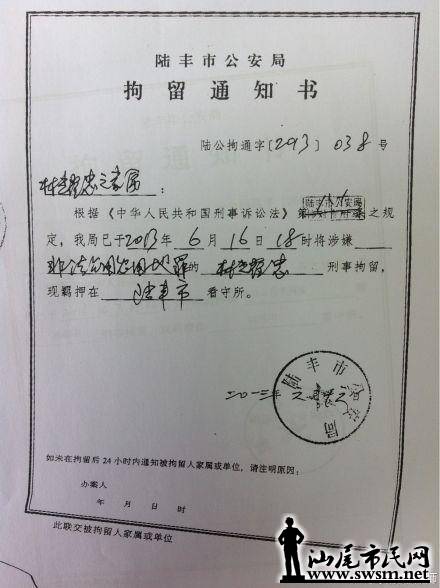 陆丰市公安局
拘留通知书
陆公拘通字[2013]038号
之家属:
根据《中华人民共和国刑事诉讼法》第 之规
定,我局已于2013年6月16日18时将涉嫌
非法占用农用地罪的 刑事拘留,
现羁押在陆丰市看守所。
陆丰市公安局
二〇一三年六月
如未在拘留后24小时内通知被拘留人家属或单位,请注明原因:
办案人
年 月 日 时
此联交被拘留人家属或单位
汕尾市民网
www.swsm.net